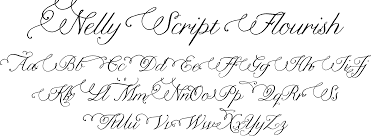 Nelly Script Flourish
Aa Bb Cc Dd Ee Ff Gg Hh Ii Jj
Kk Ll Mm Nn Oo Pp Qq Rr Ss
Tt Uu Vv Ww Xx Yy Zz